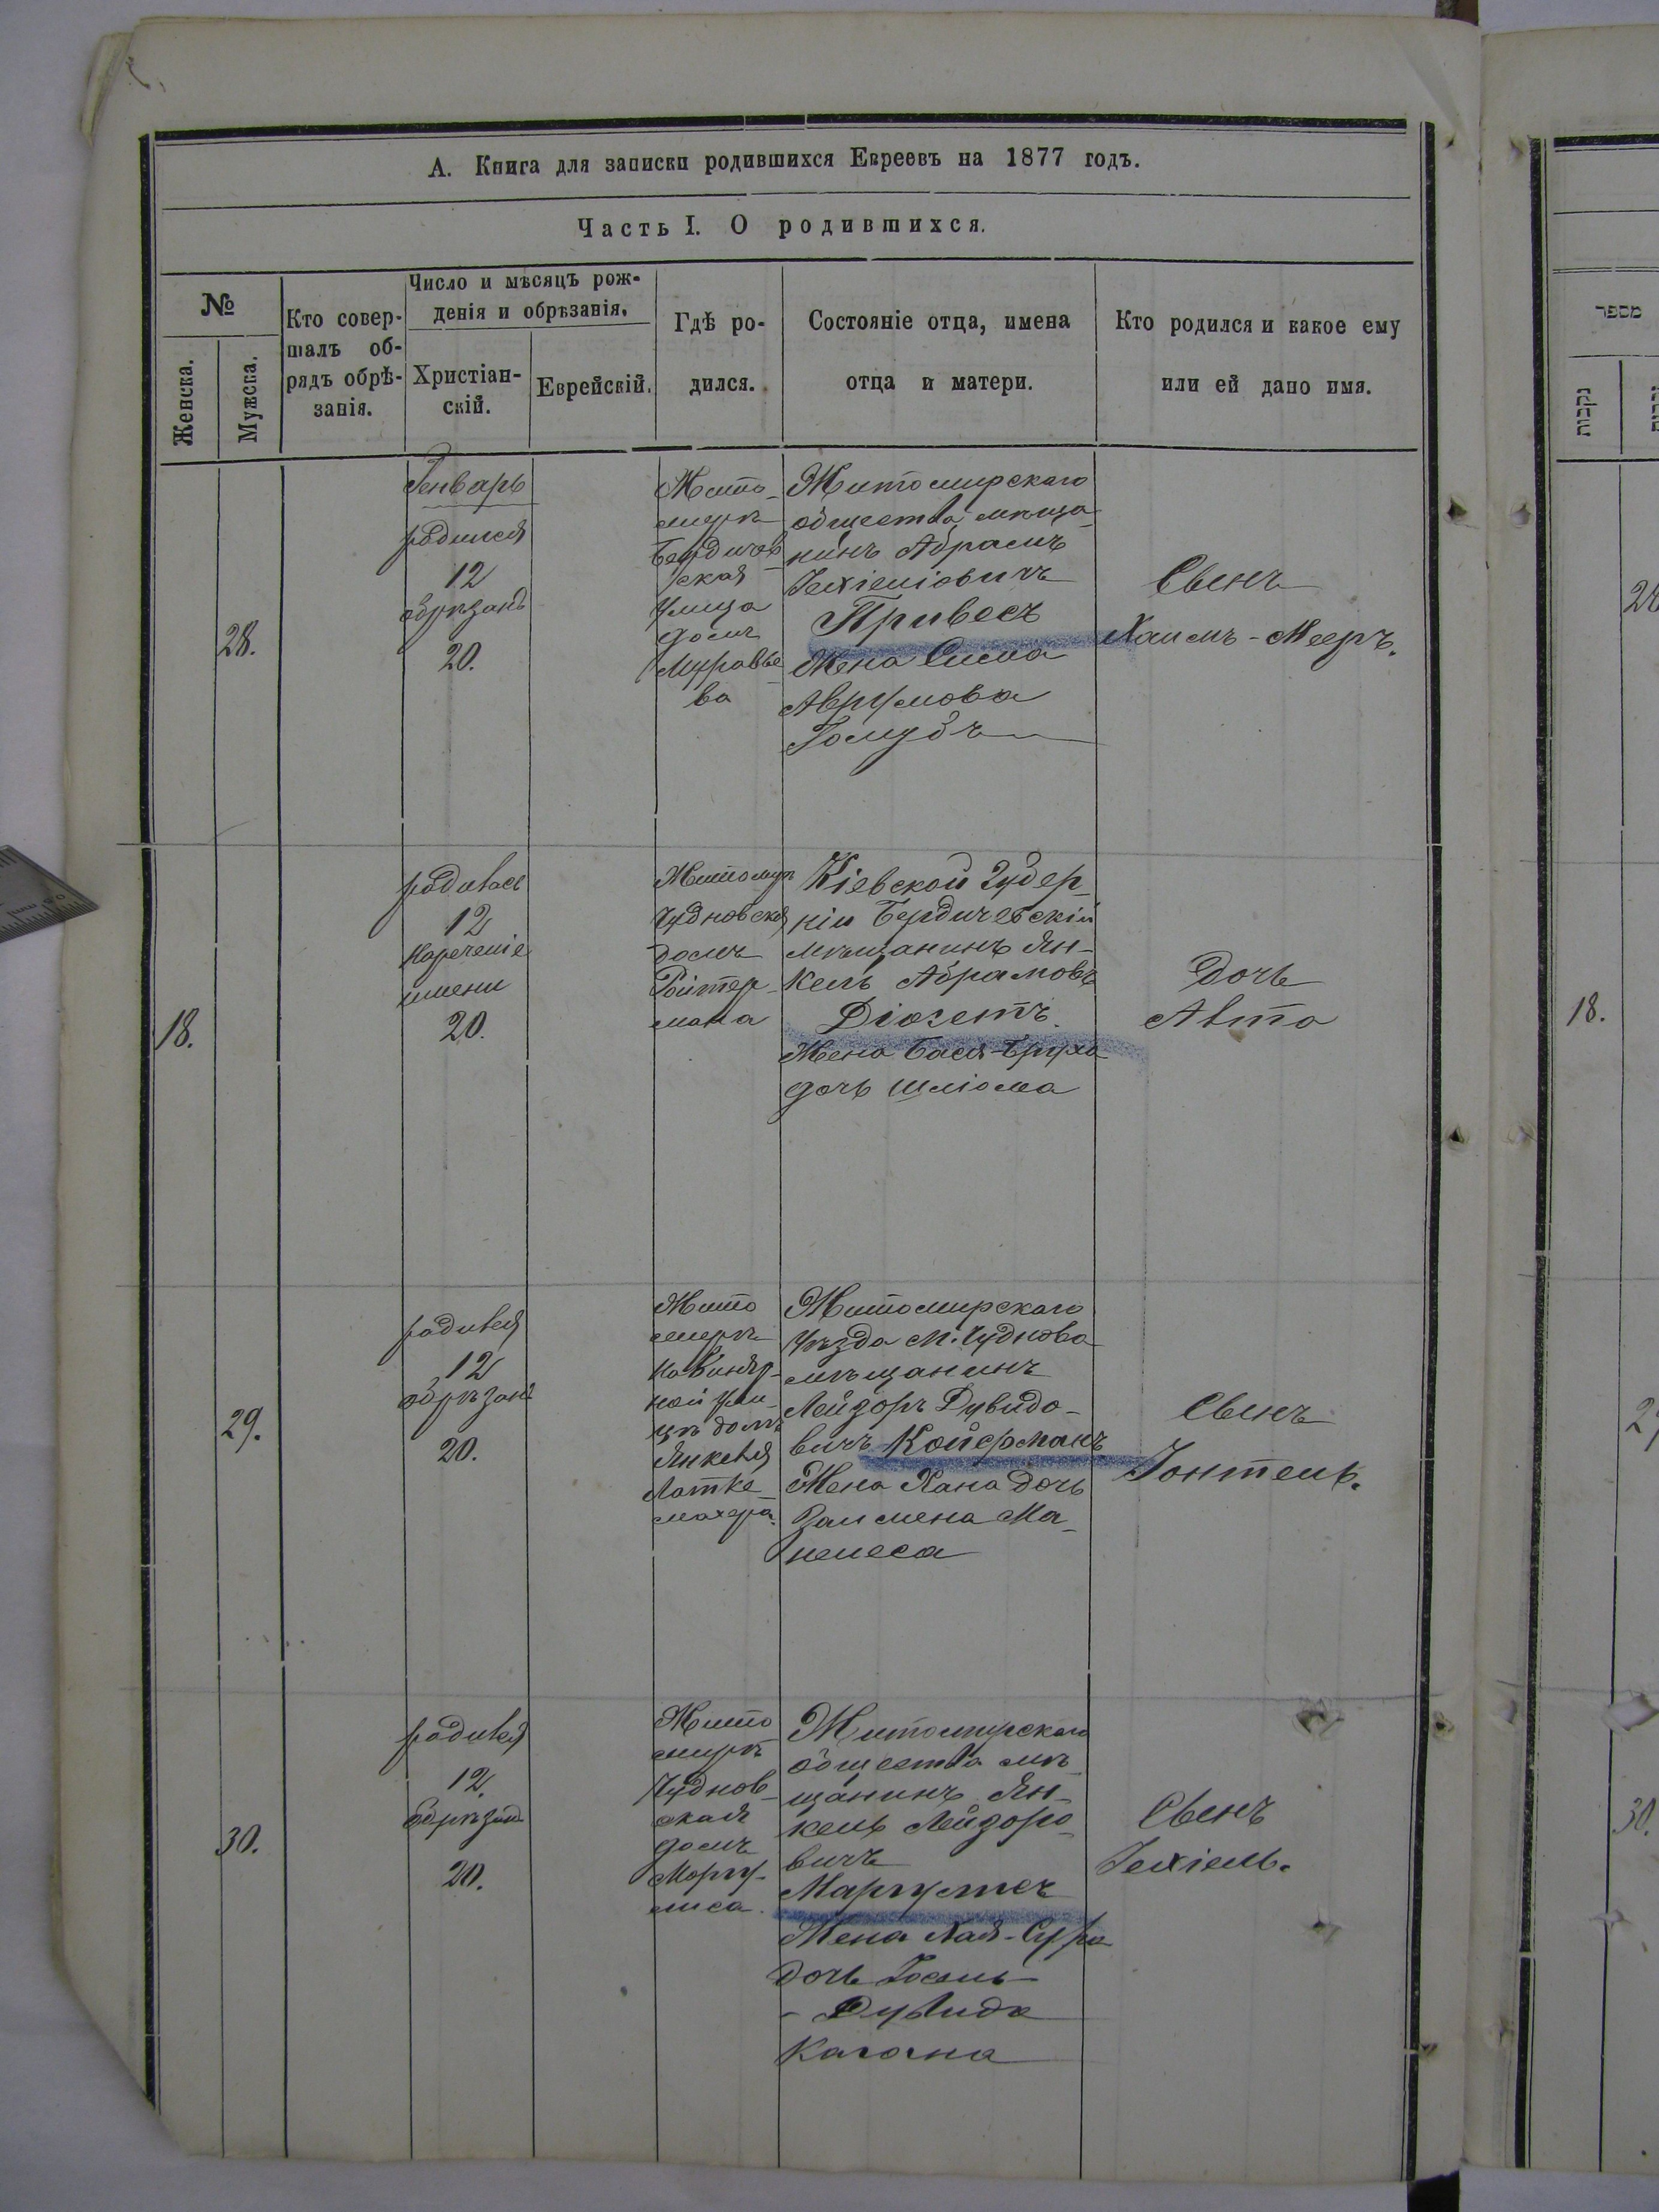 А. Книга для записки родившихся Евреевъ на 1877 годъ.
Часть I. О родившихся.
№
Женска.
Мужска.
Кто совер-
шалъ об-
рядъ обрѣ-
занія.
Число и мѣсяцъ рож-
денія и обрѣзанія.
Христіан-
скій.
Еврейскій.
Гдѣ ро-
дился.
Состояніе отца, имена
отца и матери.
Кто родился и какое ему
или ей дано имя.
28.
Генварь
родился
12
обрѣзанъ
20.
Жито-
мирѣ
Бердичев
ская
улица
домъ
Муравье-
ва
Житомирскаго
общества мѣща-
нинъ Абрамъ
Іехіеліовичъ
Привесъ
Жена Сима
Аврумова
Голубъ
Сынъ
Хаимъ-Мееръ.
18.
родилась
12
Нареченіе
имени
20.
Житомир
Чудновская
домъ
Ройтер-
мана
Кіевской Губер-
ніи Бердичевскій
мѣщанинъ Ян-
кель Абрамовъ
Діозетъ.
Жена Бася-Бруха
дочь Шліома
Дочь
29.
родился
12
обрѣзанъ
20.
Жито
мирѣ
ной ули-
цѣ домъ
Янкеля
Латке-
махера.
Житомирскаго
Уѣзда м. Чуднова
мѣщанинъ
Лейзоръ Дувидо-
вичъ Койерманъ
Жена Хана дочь
Залмена Ма-
нелеса
Сынъ
Іонтель.
30.
родился
12.
обрѣзанъ
20.
Жито
мирѣ
Чуднов-
ская
домъ
Маргу-
лиса.
Житомирскаго
общества мѣ-
щанинъ Ян-
кель Лейзоро-
вичъ
Маргулисъ
Жена Хая-Сура
дочь Іосель-
-Дувида
Кагана
Сынъ
Іехіель.
מספר
נקבות
28
18.
29
30.